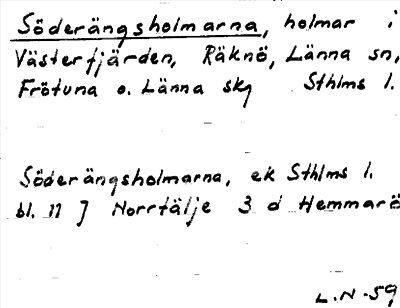 Söderängsholmarna, holmar i
Västerfjärden, Räknö, Länna sn,
Frötuna o. Länna skg Sthlms l.
Söderängsholmarna, ek Sthlms l.
bl. 11 J Norrtälje 3 d Hemmarö
L.N-59